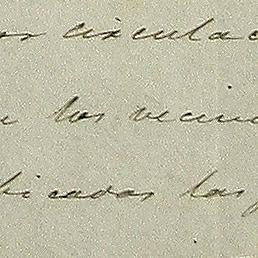 os circulac
n los vecin
bicadas las